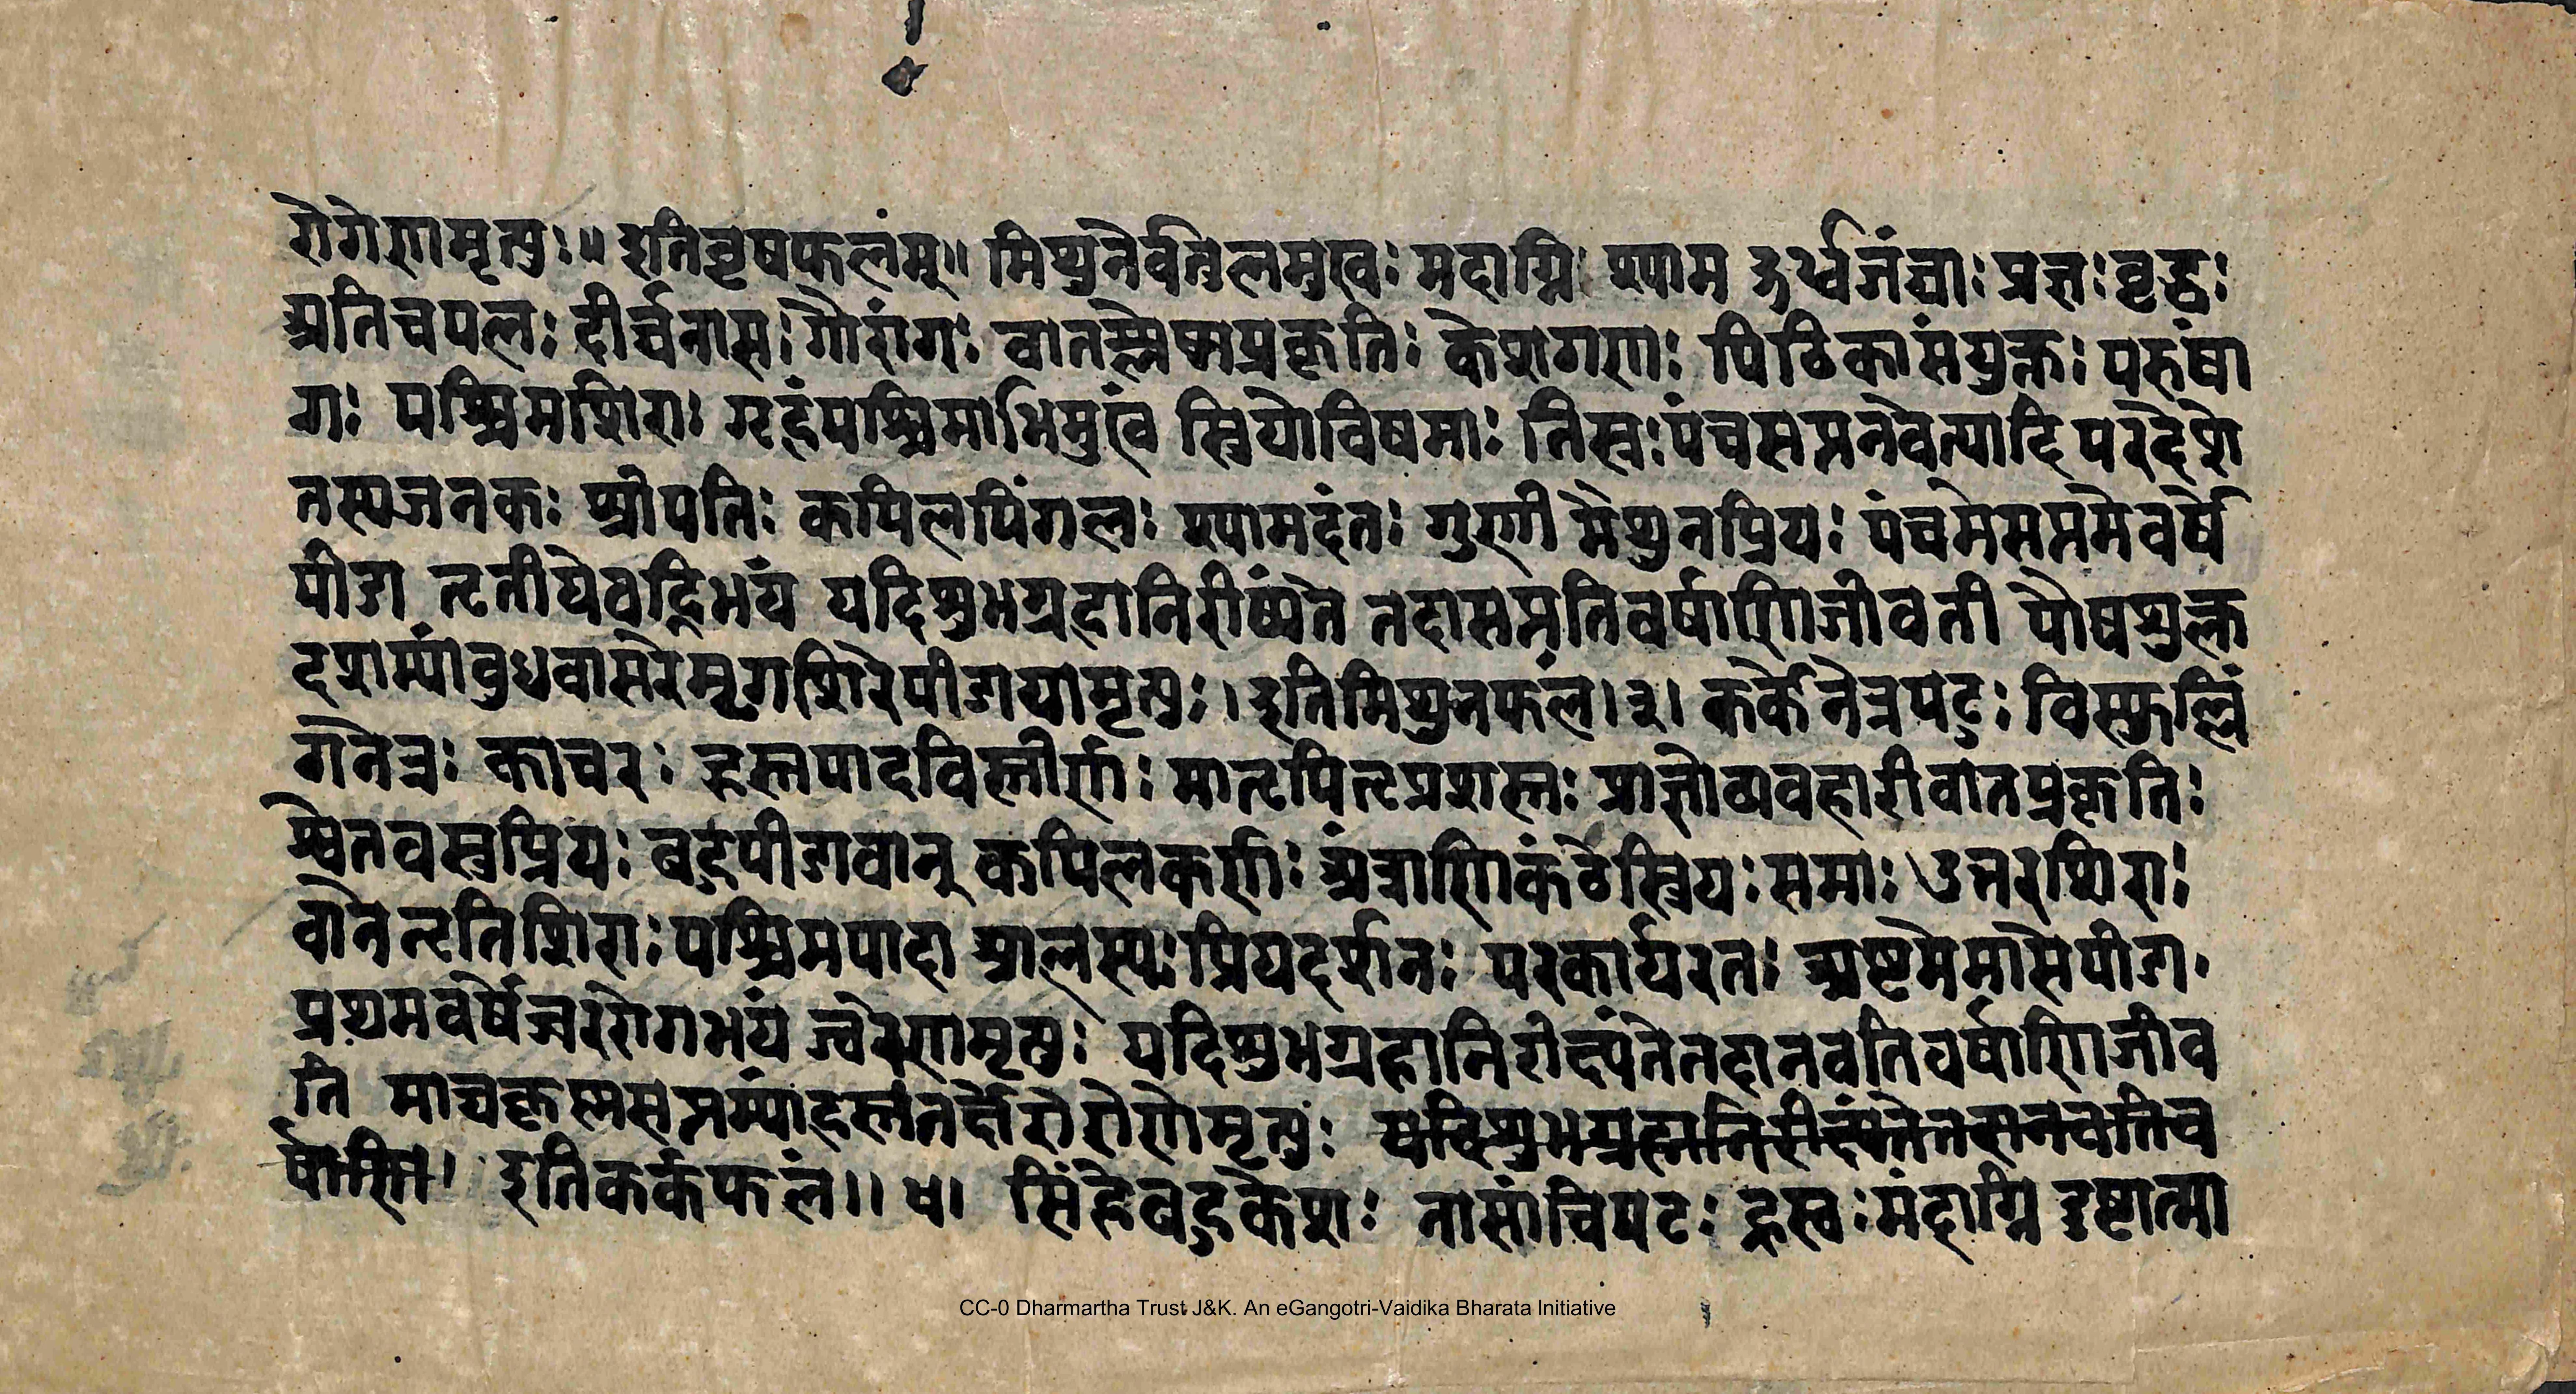 रोगेणमृत्युः॥ इतिवृषफलंम्॥ मिथुनेवर्तुलमुखः मदाग्निः श्याम ऊर्ध्वजंघाः प्रज्ञःवृद्धः
अतिचपलः दीर्घनासः गौरांगः वातश्लेष्मप्रकृतिः केशगणः पिठिकासंयुक्तः परुषां
गः पश्चिमशिराः गृहंपश्चिमाभिमुखं स्त्रियोविषमाः तिस्रःपंचसप्तनवेत्यादि परदेशे
तस्यजनकः श्रीपतिः कपिलपिंगलः श्यामदंतः गुणी मैथुनप्रियः पंचमेसप्तमेवर्षे
पीडा तृतीयेवह्निभयं यदिशुभग्रहानिरीष्यंते तदासप्ततिवर्षाणिजीवती पौषशुक्ल
दशाम्यांबुधवासरेमृगशिरेपीडयामृत्युः। इतिमिथुनफलं।३। कर्केनेत्रपटुः विस्फुल्लिं
गनेत्रः काचरः हस्तपादविस्तीर्णः मातृपितृप्रशस्तः प्राज्ञोव्यवहारीवातप्रकृतिः
श्वेतवस्त्रप्रियः बहुपीडावान् कपिलकर्णः अंत्राणिकंठेस्त्रियःसमाः उत्तरशिराः
वानेनृतिशिराः पश्चिमपादा आलस्यः प्रियदर्शनः परकार्यरतः अष्टमेमासेपीडा
प्रथमवर्षेज्वररोगभयं ज्वरेणमृत्युः यदिशुभग्रहानिरीक्ष्यंतेतदानवतिवर्षाणिजीव
ति माघकृस्मसप्तम्यांहस्तनक्षेत्रे रोगेणमृत्युः यदिशुभग्रहानिरीक्ष्यंतेतदानवतिव
र्षाणि। इतिकर्कफलं॥ ४। सिंहेबहुकेशः नासाचिपटः ह्रस्वः मंदाग्नि दुष्टात्मा
CC-0 Dharmartha Trust J&K. An eGangotri-Vaidika Bharata Initiative